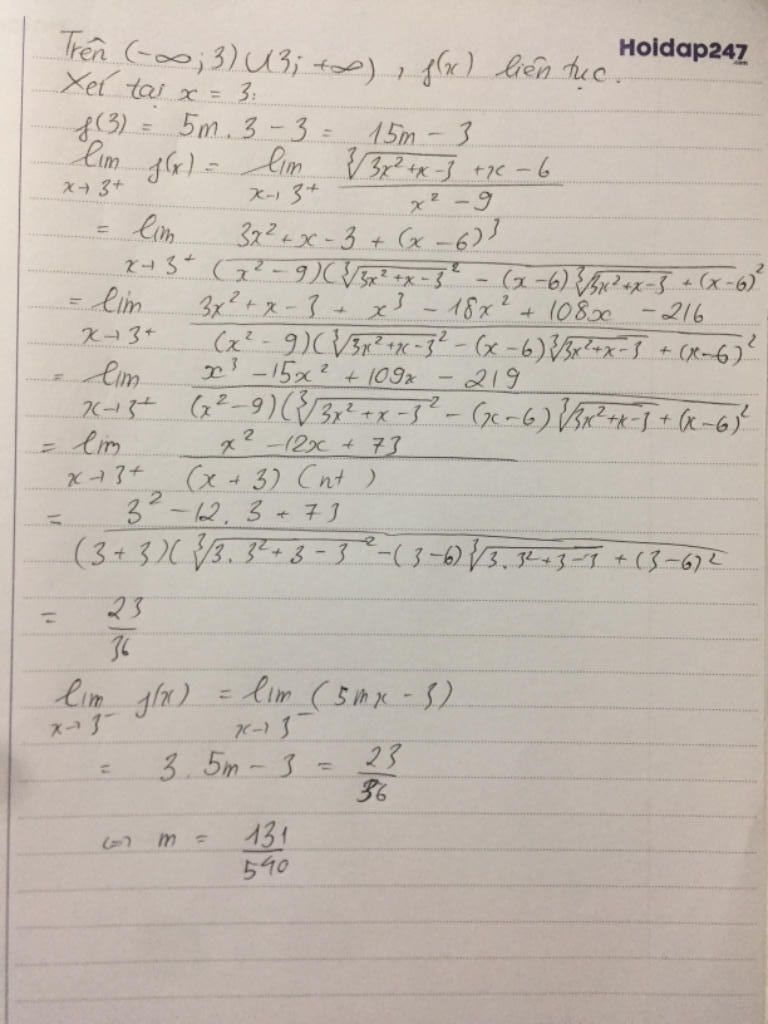 Hoidap247
.com
Trên (-∞; 3) ∪ (3; +∞), f(x) liên tục.
Xét tại x = 3:
f(3) = 5m . 3 - 3 = 15m - 3
lim x→3⁺ f(x) = lim x→3⁺ (∛(3x²+x-3) + x - 6) / (x² - 9)
= lim x→3⁺ (3x² + x - 3 + (x - 6)³) / ((x² - 9)(∛(3x²+x-3)² - (x-6)∛(3x²+x-3) + (x-6)²
= lim x→3⁺ (3x² + x - 3 + x³ - 18x² + 108x - 216) / ((x² - 9)(∛(3x²+x-3)² - (x-6)∛(3x²+x-3) + (x-6)²
= lim x→3⁺ (x³ - 15x² + 109x - 219) / ((x² - 9)(∛(3x²+x-3)² - (x-6)∛(3x²+x-3) + (x-6)²
= lim x→3⁺ (x² - 12x + 73) / ((x + 3) (nt))
= (3² - 12. 3 + 73) / ((3 + 3)(∛(3. 3² + 3 - 3)² - (3-6)∛(3. 3²+3-3) + (3-6)²
= 23/36
lim x→3⁻ f(x) = lim x→3⁻ (5mx - 3)
= 3 . 5m - 3 = 23/36
⇔ m = 131/540